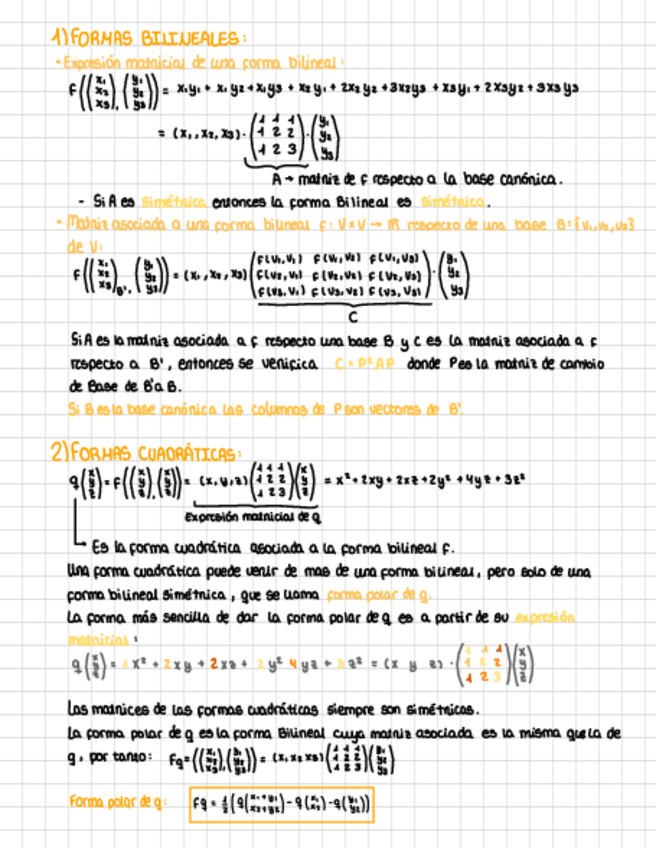 1) FORMAS BILINEALES:
• Expresión matricial de una forma bilineal:
F((x₁ x₂ x₃), (y₁ y₂ y₃)) = x₁y₁ + x₁y₂ + x₁y₃ + x₂y₁ + 2x₂y₂ + 3x₂y₃ + x₃y₁ + 2x₃y₂ + 3x₃y₃
= (x₁, x₂, x₃) · (1 1 1 / 1 2 2 / 1 2 3) · (y₁ y₂ y₃)
A → matriz de F respecto a la base canónica.
- Si A es simétrica entonces la forma Bilineal es simétrica.
• Matriz asociada a una forma bilineal F: V×V → IR respecto de una base B={V₁,V₂,V₃}
de V:
F((x₁ x₂ x₃)B', (y₁ y₂ y₃)) = (x₁, x₂, x₃) (F(V₁,V₁) F(V₁,V₂) F(V₁,V₃) / F(V₂,V₁) F(V₂,V₂) F(V₂,V₃) / F(V₃,V₁) F(V₃,V₂) F(V₃,V₃)) · (y₁ y₂ y₃)
C
Si A es la matriz asociada a F respecto una base B y C es la matriz asociada a F
respecto a B', entonces se verifica C = PᵗAP donde P es la matriz de cambio
de Base de B' a B.
Si B es la base canónica las columnas de P son vectores de B'.
2) FORMAS CUADRÁTICAS:
q(x y z) = F((x y z), (x y z)) = (x, y, z) (1 1 1 / 1 2 2 / 1 2 3) (x y z) = x² + 2xy + 2xz + 2y² + 4yz + 3z²
Expresión matricial de q
Es la forma cuadrática asociada a la forma bilineal F.
Una forma cuadrática puede venir de mas de una forma bilineal, pero solo de una
forma bilineal simétrica, que se llama forma polar de q.
La forma más sencilla de dar la forma polar de q es a partir de su expresión
matricial:
q(x y z) = 1x² + 2xy + 2xz + 2y² 4yz + 3z² = (x y z) · (1 1 1 / 1 2 2 / 1 2 3) (x y z)
Las matrices de las formas cuadráticas siempre son simétricas.
La forma polar de q es la forma Bilineal cuya matriz asociada es la misma que la de
q, por tanto: Fq = ((x₁ x₂ x₃), (y₁ y₂ y₃)) = (x₁ x₂ x₃) (1 1 1 / 1 2 2 / 1 2 3) (y₁ y₂ y₃)
Forma polar de q: Fq = ½ (q(x₁+y₁ x₂+y₂) - q(x₁ x₂) - q(y₁ y₂))